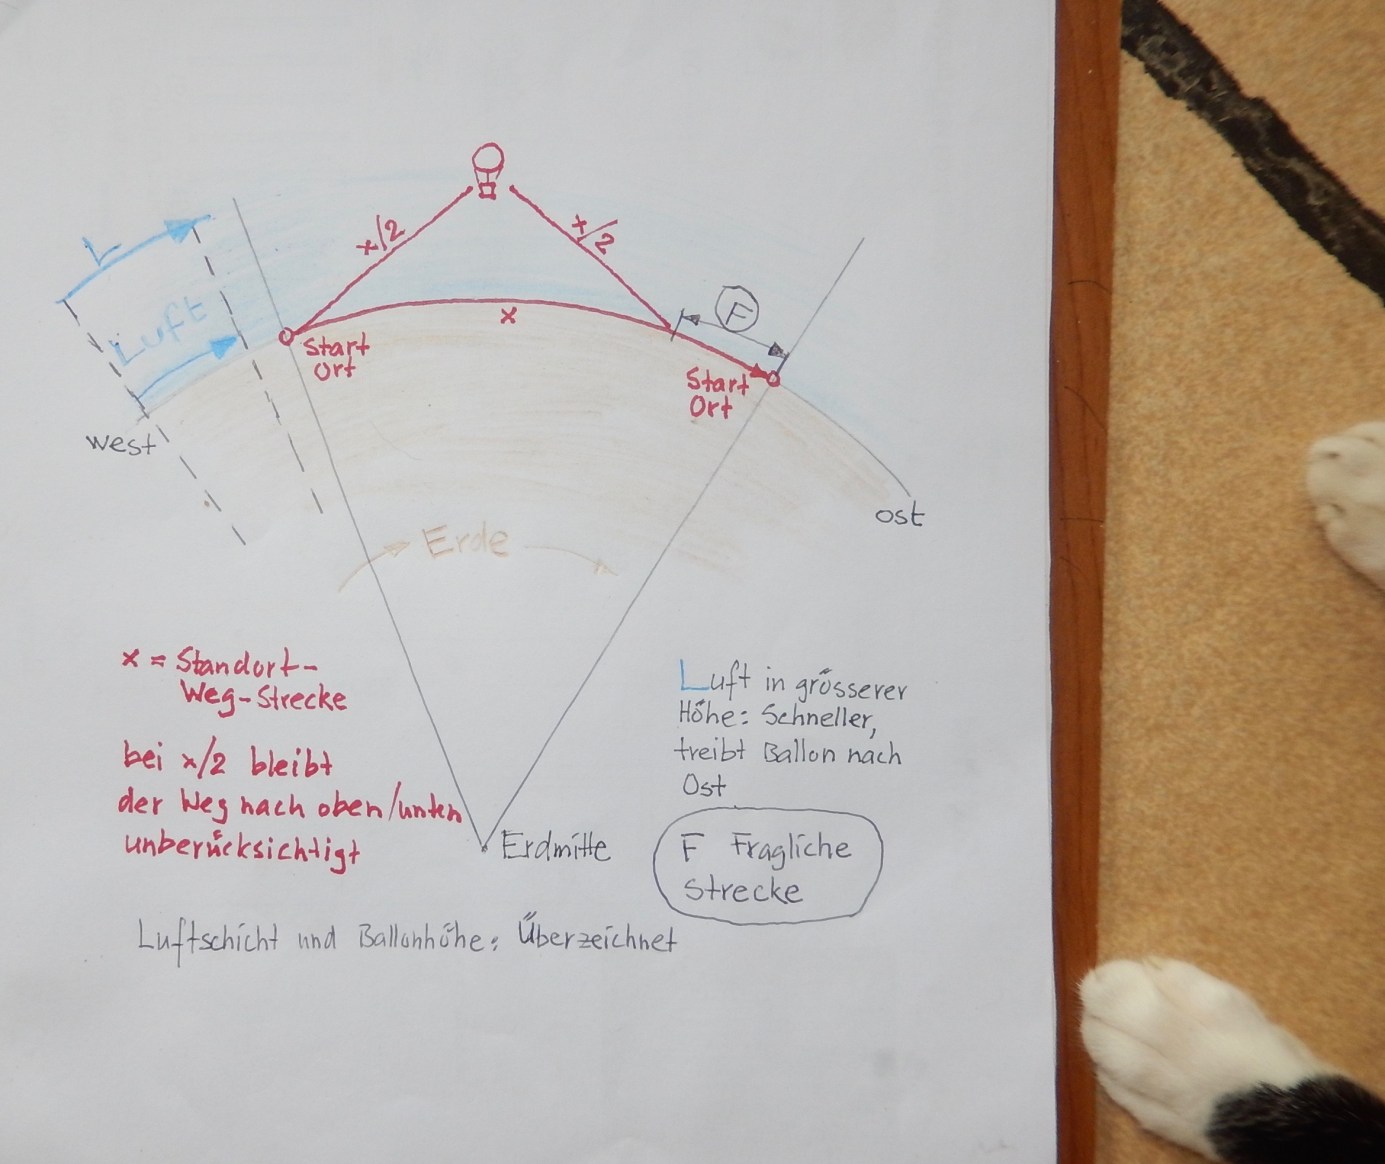 x/2
x/2
L
Luft
F
x
Start
Ort
Start
Ort
west
ost
Erde
x = Standort-
Weg-Strecke
bei x/2 bleibt
der Weg nach oben/unten
unberücksichtigt
Luft in grösserer
Höhe: Schneller,
treibt Ballon nach
Ost
Erdmitte
F Fragliche
Strecke
Luftschicht und Ballonhöhe: Überzeichnet